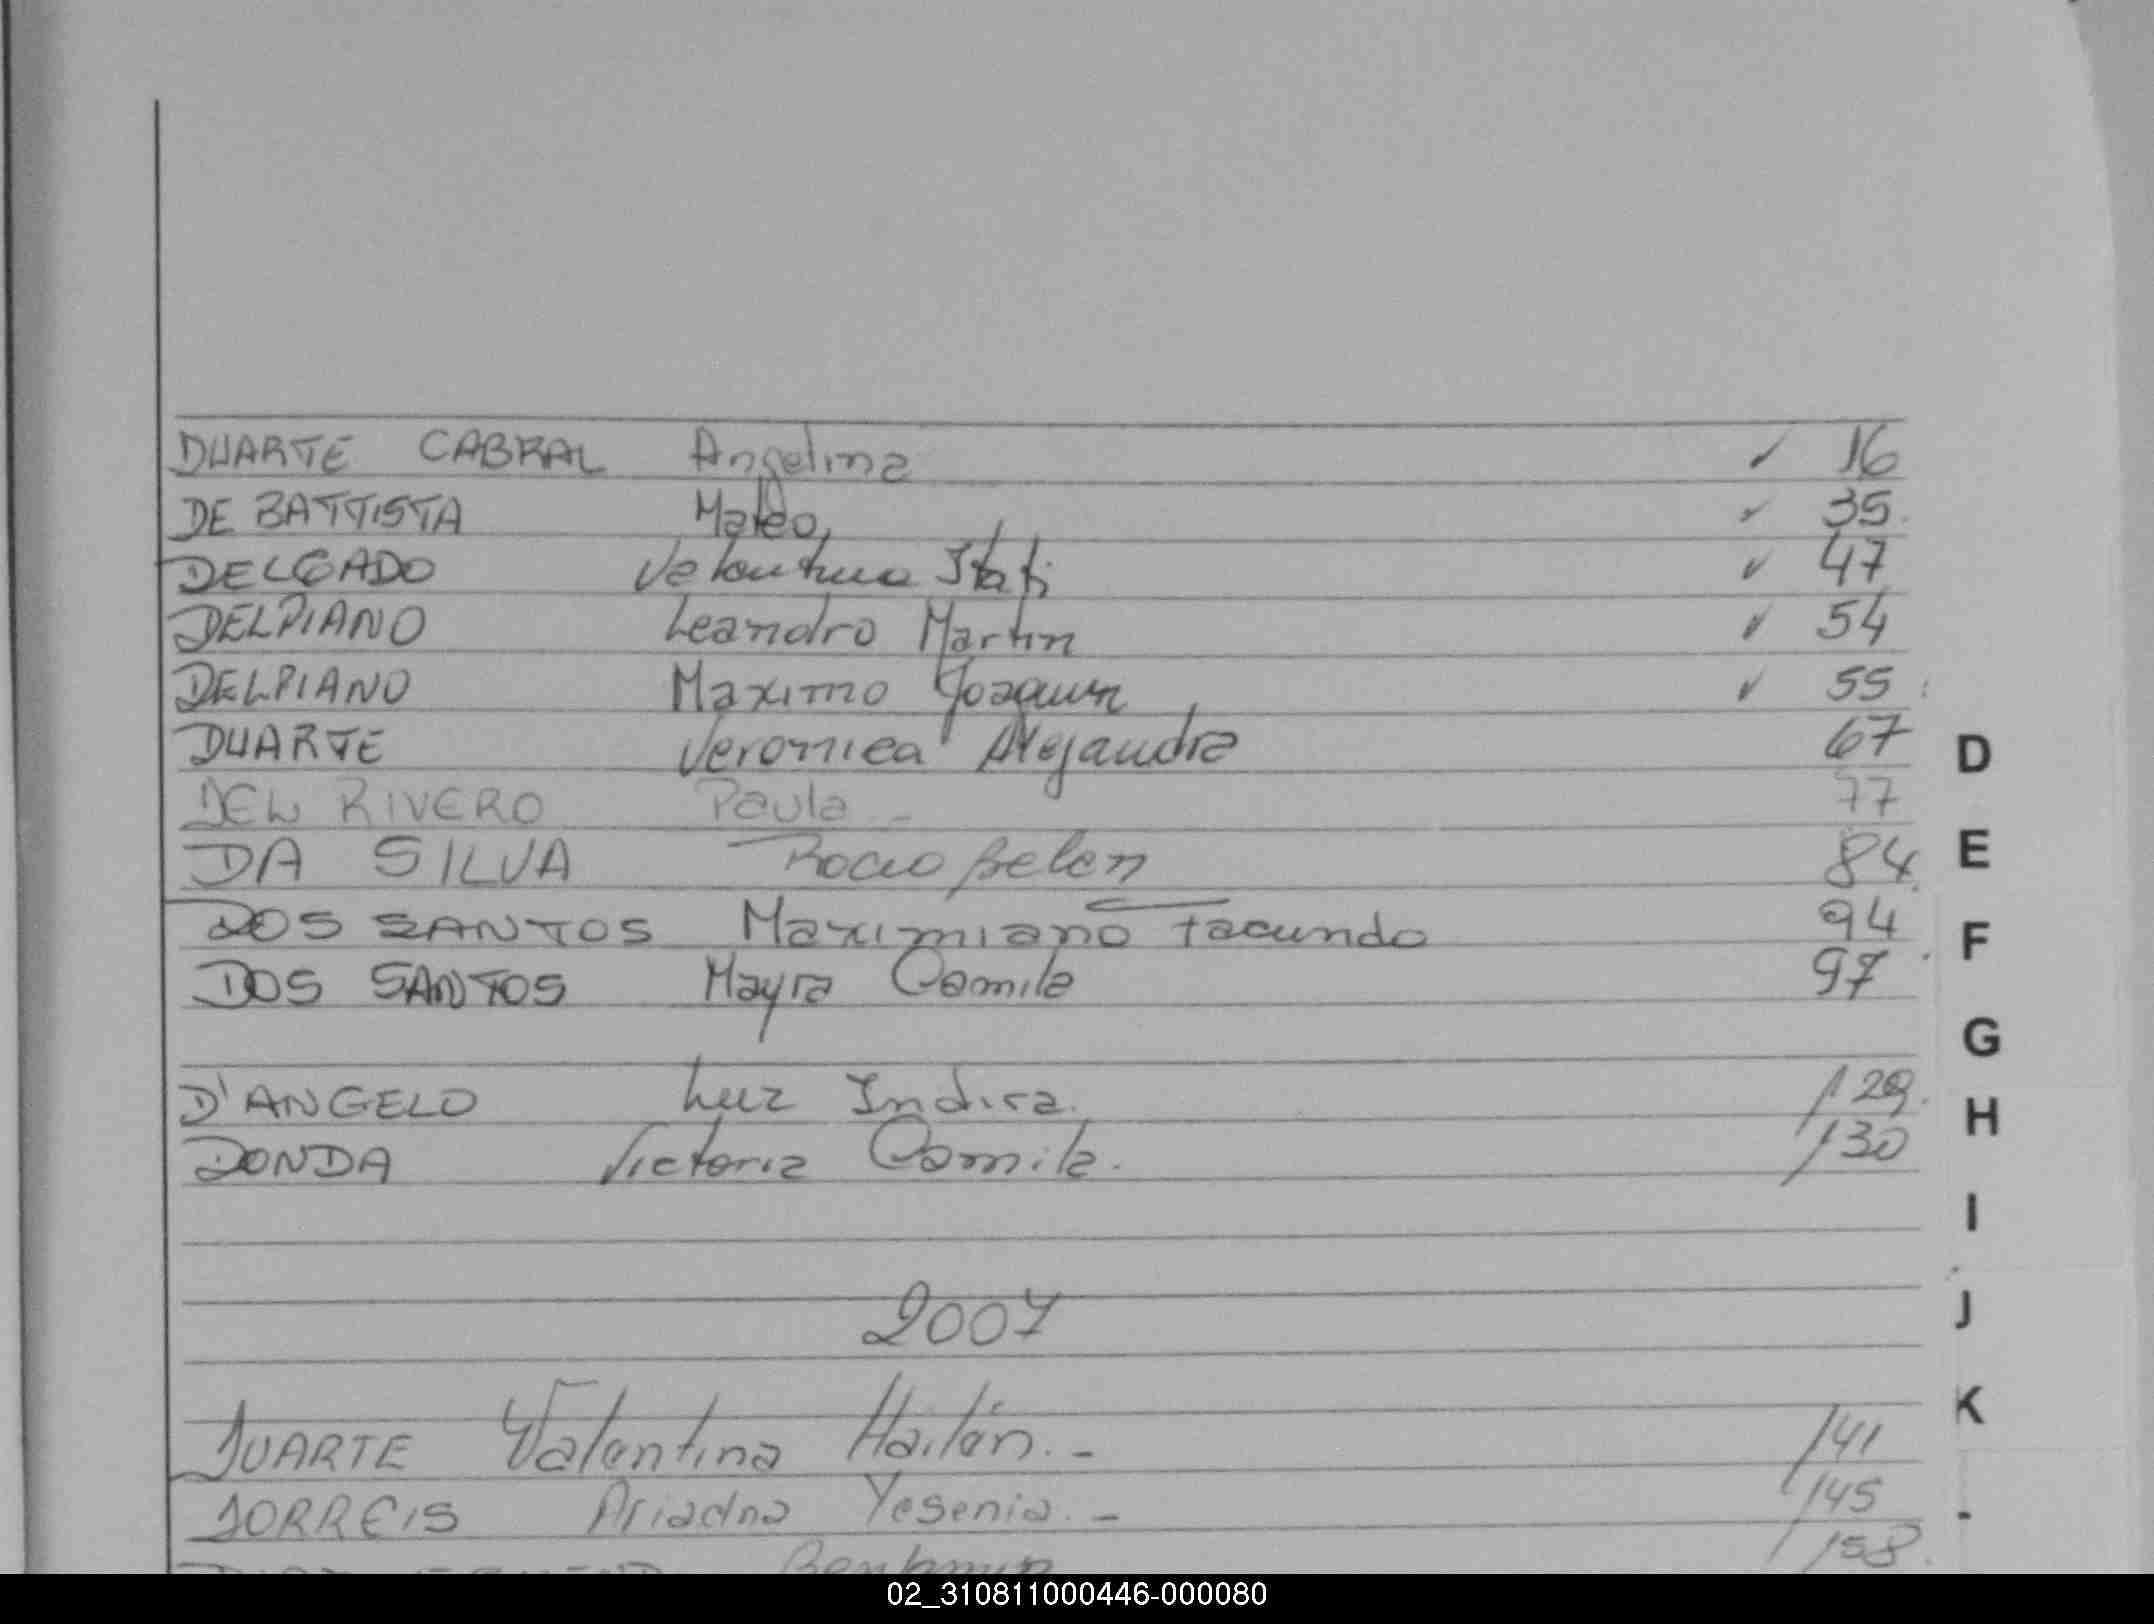 DUARTE CABRAL Angelina ✓ 16
DE BATTISTA Mateo ✓ 35.
DELGADO Valentina Itati ✓ 47
DELPIANO Leandro Martin ✓ 54
DELPIANO Maximo Joaquin ✓ 55
DUARTE Veronica Alejandra 67
D
DEL RIVERO Paula - 77
DA SILVA Rocio Belen 84
E
DOS SANTOS Maximiano Facundo 94
F
DOS SANTOS Mayra Camila 97
G
D'ANGELO Luz Indira. 129.
H
DONDA Victoria Camila. 130
I
2007
J
K
DUARTE Valentina Hailén. - 141
DORREIS Ariadna Yesenia. - 145
Benjamin 158.
02_310811000446-000080